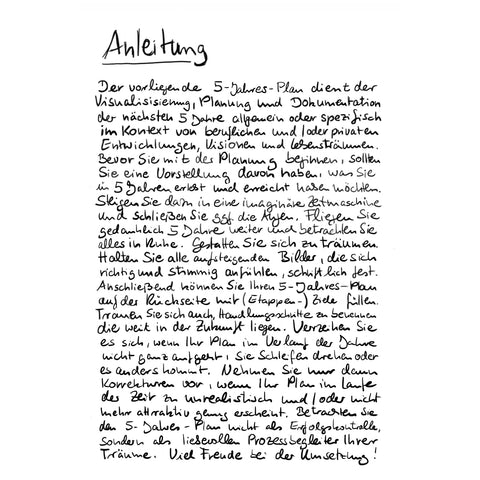 Anleitung
Der vorliegende 5-Jahres-Plan dient der
Visualisisierung, Planung und Dokumentation
der nächsten 5 Jahre allgemein oder spezifisch
im Kontext von beruflichen und/oder privaten
Entwicklungen, Visionen und Lebensträumen.
Bevor Sie mit der Planung beginnen, sollten
Sie eine Vorstellung davon haben, was Sie
in 5 Jahren erlebt und erreicht haben möchten.
Steigen Sie dazu in eine imaginäre Zeitmaschine
und schließen Sie ggf. die Augen. Fliegen Sie
gedanklich 5 Jahre weiter und betrachten Sie
alles in Ruhe. Gestatten Sie sich zu träumen.
Halten Sie alle aufsteigenden Bilder, die sich
richtig und stimmig anfühlen, schriftlich fest.
Anschließend können Sie Ihren 5-Jahres-Plan
auf der Rückseite mit (Etappen-) Ziele füllen.
Trauen Sie sich auch, Handlungsschritte zu benennen
die weit in der Zukunft liegen. Verzeihen Sie
es sich, wenn Ihr Plan im Verlauf der Jahre
nicht ganz aufgeht, Sie Schleifen drehen oder
es anders kommt. Nehmen Sie nur dann
Korrekturen vor, wenn Ihr Plan im Laufe
der Zeit zu unrealistisch und/oder nicht
mehr attraktiv genug erscheint. Betrachten Sie
den 5-Jahres-Plan nicht als Erfolgskontrolle,
sondern als liebevollen Prozessbegleiter Ihrer
Träume. Viel Freude bei der Umsetzung!